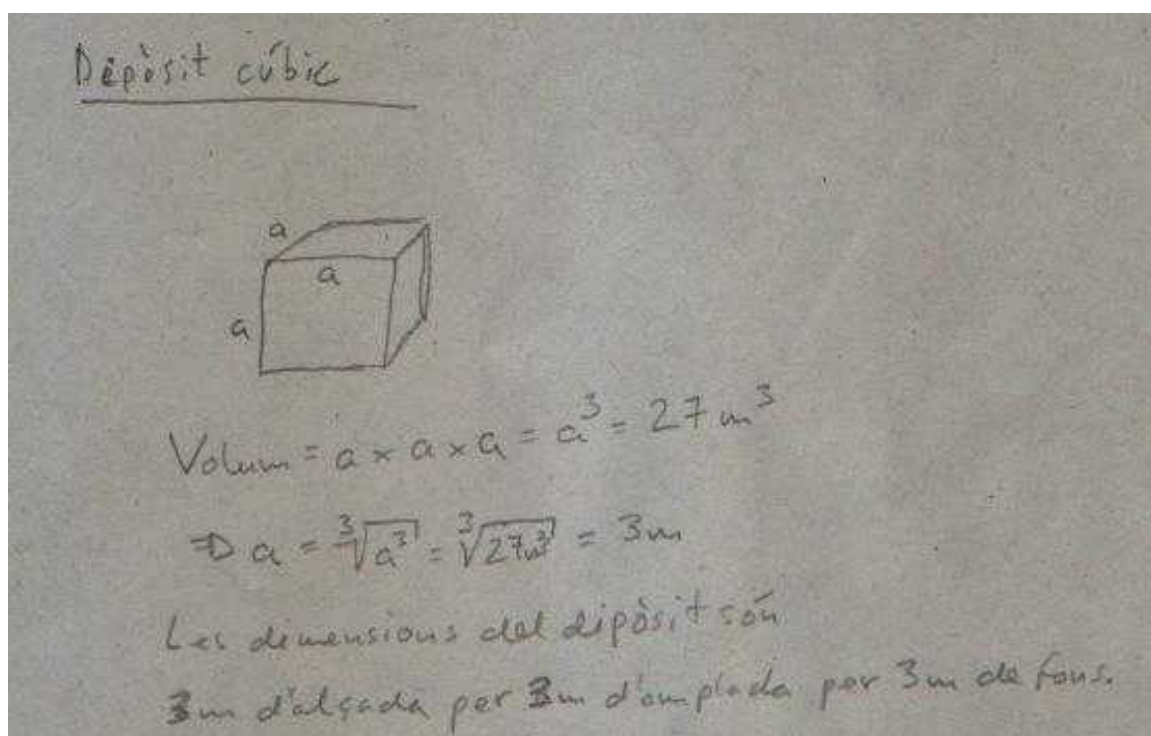 Dipòsit cúbic
a
a
a
Volum = a × a × a = a³ = 27 m³
⇒ a = ∛a³ = ∛27m³ = 3m
Les dimensions del dipòsit són
3m d'alçada per 3m d'amplada per 3m de fons.